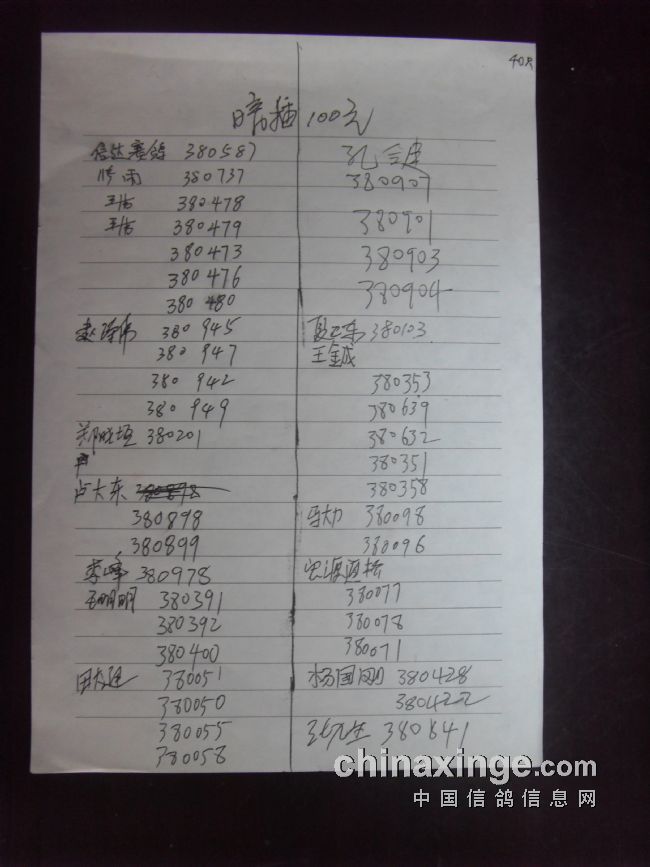 40只
暗插100元
信达赛鸽 380587
380737
王浩 380478
王浩 380479
380473
380476
380 480
380 945
380 947
380 942
380 949
郑晓恒 380201
卢大东 380898
380898
380899
李峰 380978
王明明 380391
380392
380400
380051
380050
380055
380058
孔令建
380907
380901
380903
380904
380103
王金成
380353
380639
380632
380351
380358
马大力 380098
380096
380077
380078
380071
杨国刚 380428
380422
380841
chinaxinge.com
中国信鸽信息网